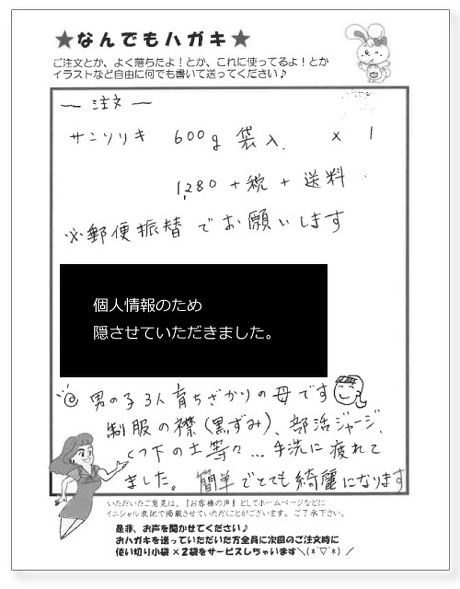 ★なんでもハガキ★
ご注文とか、よく落ちたよ！とか、これに使ってるよ！とか
イラストなど自由に何でも書いて送ってください♪
ー 注文 ー
サンソリキ 600g 袋入. × 1
1,280 + 税 + 送料
※郵便振替でお願いします
個人情報のため
隠させていただきました。
男の子3人育ちざかりの母です
制服の襟(黒ずみ)、部活ジャージ、
くつ下の土等々…手洗に疲れて
ました。簡単でとても綺麗になります
いただいたご意見は、『お客様の声』としてホームページなどに
イニシャル表記で掲載させていただくことがございます。ご了承下さい。
是非、お声を聞かせてください♪
おハガキを送っていただいた方全員に次回のご注文時に
使い切り小袋×2袋をサービスしちゃいます＼(*´▽`*)／